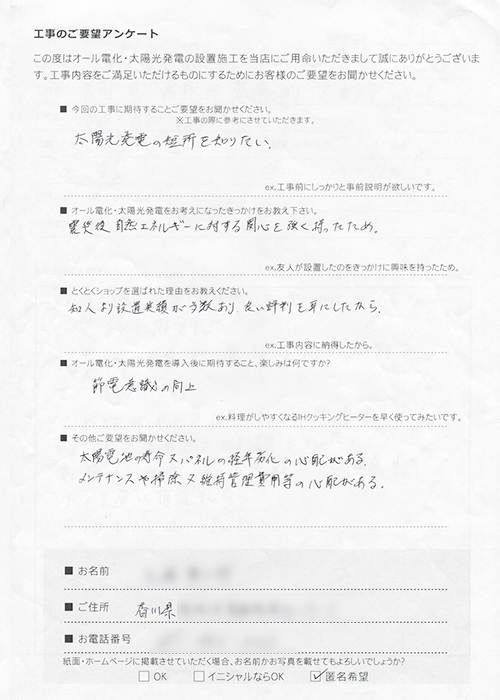 工事のご要望アンケート
この度はオール電化・太陽光発電の設置施工を当店にご用命いただきまして誠にありがとうございま
す。工事内容をご満足いただけるものにするためにお客様のご要望をお聞かせください。
■ 今回の工事に期待することご要望をお聞かせください。
※工事の際に参考にさせていただきます。
太陽光発電の短所を知りたい.
ex.工事前にしっかりと事前説明が欲しいです。
■ オール電化・太陽光発電をお考えになったきっかけをお教え下さい。
震災後 自然エネルギーに対する関心を強く持ったため。
ex.友人が設置したのをきっかけに興味を持ったため。
■ とくとくショップを選ばれた理由をお教えください。
知人より設置実績が多数あり 良い評判を耳にしたから.
ex.工事内容に納得したから。
■ オール電化・太陽光発電を導入後に期待すること、楽しみは何ですか?
節電意識の向上
ex.料理がしやすくなるIHクッキングヒーターを早く使ってみたいです。
■ その他ご要望をお聞かせください。
太陽電池の寿命 又パネルの経年劣化の心配がある.
メンテナンスや掃除 又維持管理費用等の心配がある.
■ お名前
■ ご住所 香川県
■ お電話番号
紙面・ホームページに掲載させていただく場合、お名前かお写真を載せてもよろしいでしょうか?
□ OK □ イニシャルならOK ☑ 匿名希望